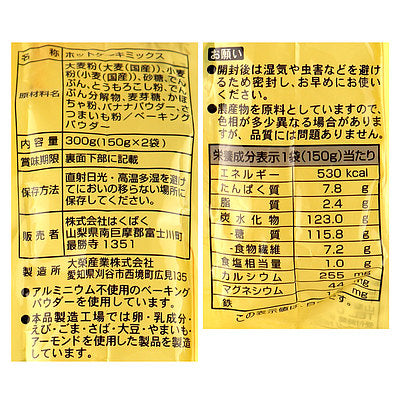 名称 ホットケーキミックス
原材料名 大麦粉(大麦(国産))、小麦
粉(小麦(国産))、砂糖、でん
ぷん、とうもろこし粉、でん
ぷん分解物、麦芽糖、かぼ
ちゃ粉、バナナパウダー、さ
つまいも粉／ベーキング
パウダー
内容量 300g(150g×2袋)
賞味期限 裏面下部に記載
保存方法 直射日光・高温多湿を避け
てにおいの移らない場所に
保存してください。
販売者 株式会社はくばく
山梨県南巨摩郡富士川町
最勝寺1351
製造所 大榮産業株式会社
愛知県刈谷市西境町広見135
●アルミニウム不使用のベーキング
パウダーを使用しています。
●本品製造工場では卵・乳成分・
えび・ごま・さば・大豆・やまいも・
アーモンドを使用した製品を製造
しています。
お願い
●開封後は湿気や虫害などを避け
るため密封し、お早めにお使い
ください。
●農産物を原料としていますので、
色相が多少異なる場合があります
が、品質には問題ありません。
栄養成分表示1袋(150g)当たり
エネルギー 530 kcal
たんぱく質 7.8 g
脂質 2.4 g
炭水化物 123.0 g
-糖質 115.8 g
-食物繊維 7.2 g
食塩相当量 1.0 g
カルシウム 255 mg
マグネシウム 44 mg
鉄 mg
この表示値は、